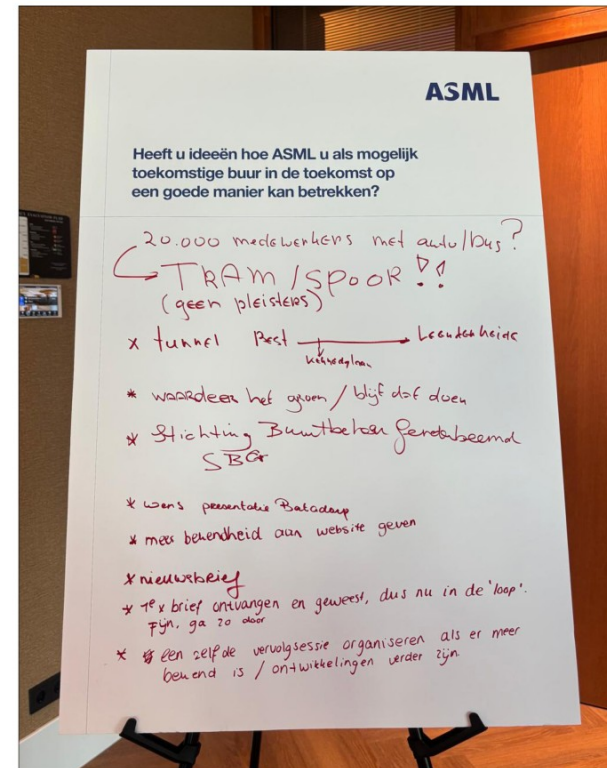 ASML
Heeft u ideeën hoe ASML u als mogelijk
toekomstige buur in de toekomst op
een goede manier kan betrekken?
20.000 medewerkers met auto/bus?
TRAM/SPOOR!!
(geen pleisters)
x tunnel Best Leenderheide
Kennedylaan
* waardeer het groen / blijf dat doen
* Stichting Buurtbeheer
SBG
* wens presentatie Batadorp
* meer bekendheid aan website geven
* nieuwsbrief
* 1e x brief ontvangen en geweest, dus nu in de 'loop'.
Fijn, ga zo door
* een zelfde vervolgsessie organiseren als er meer
bekend is / ontwikkelingen verder zijn.